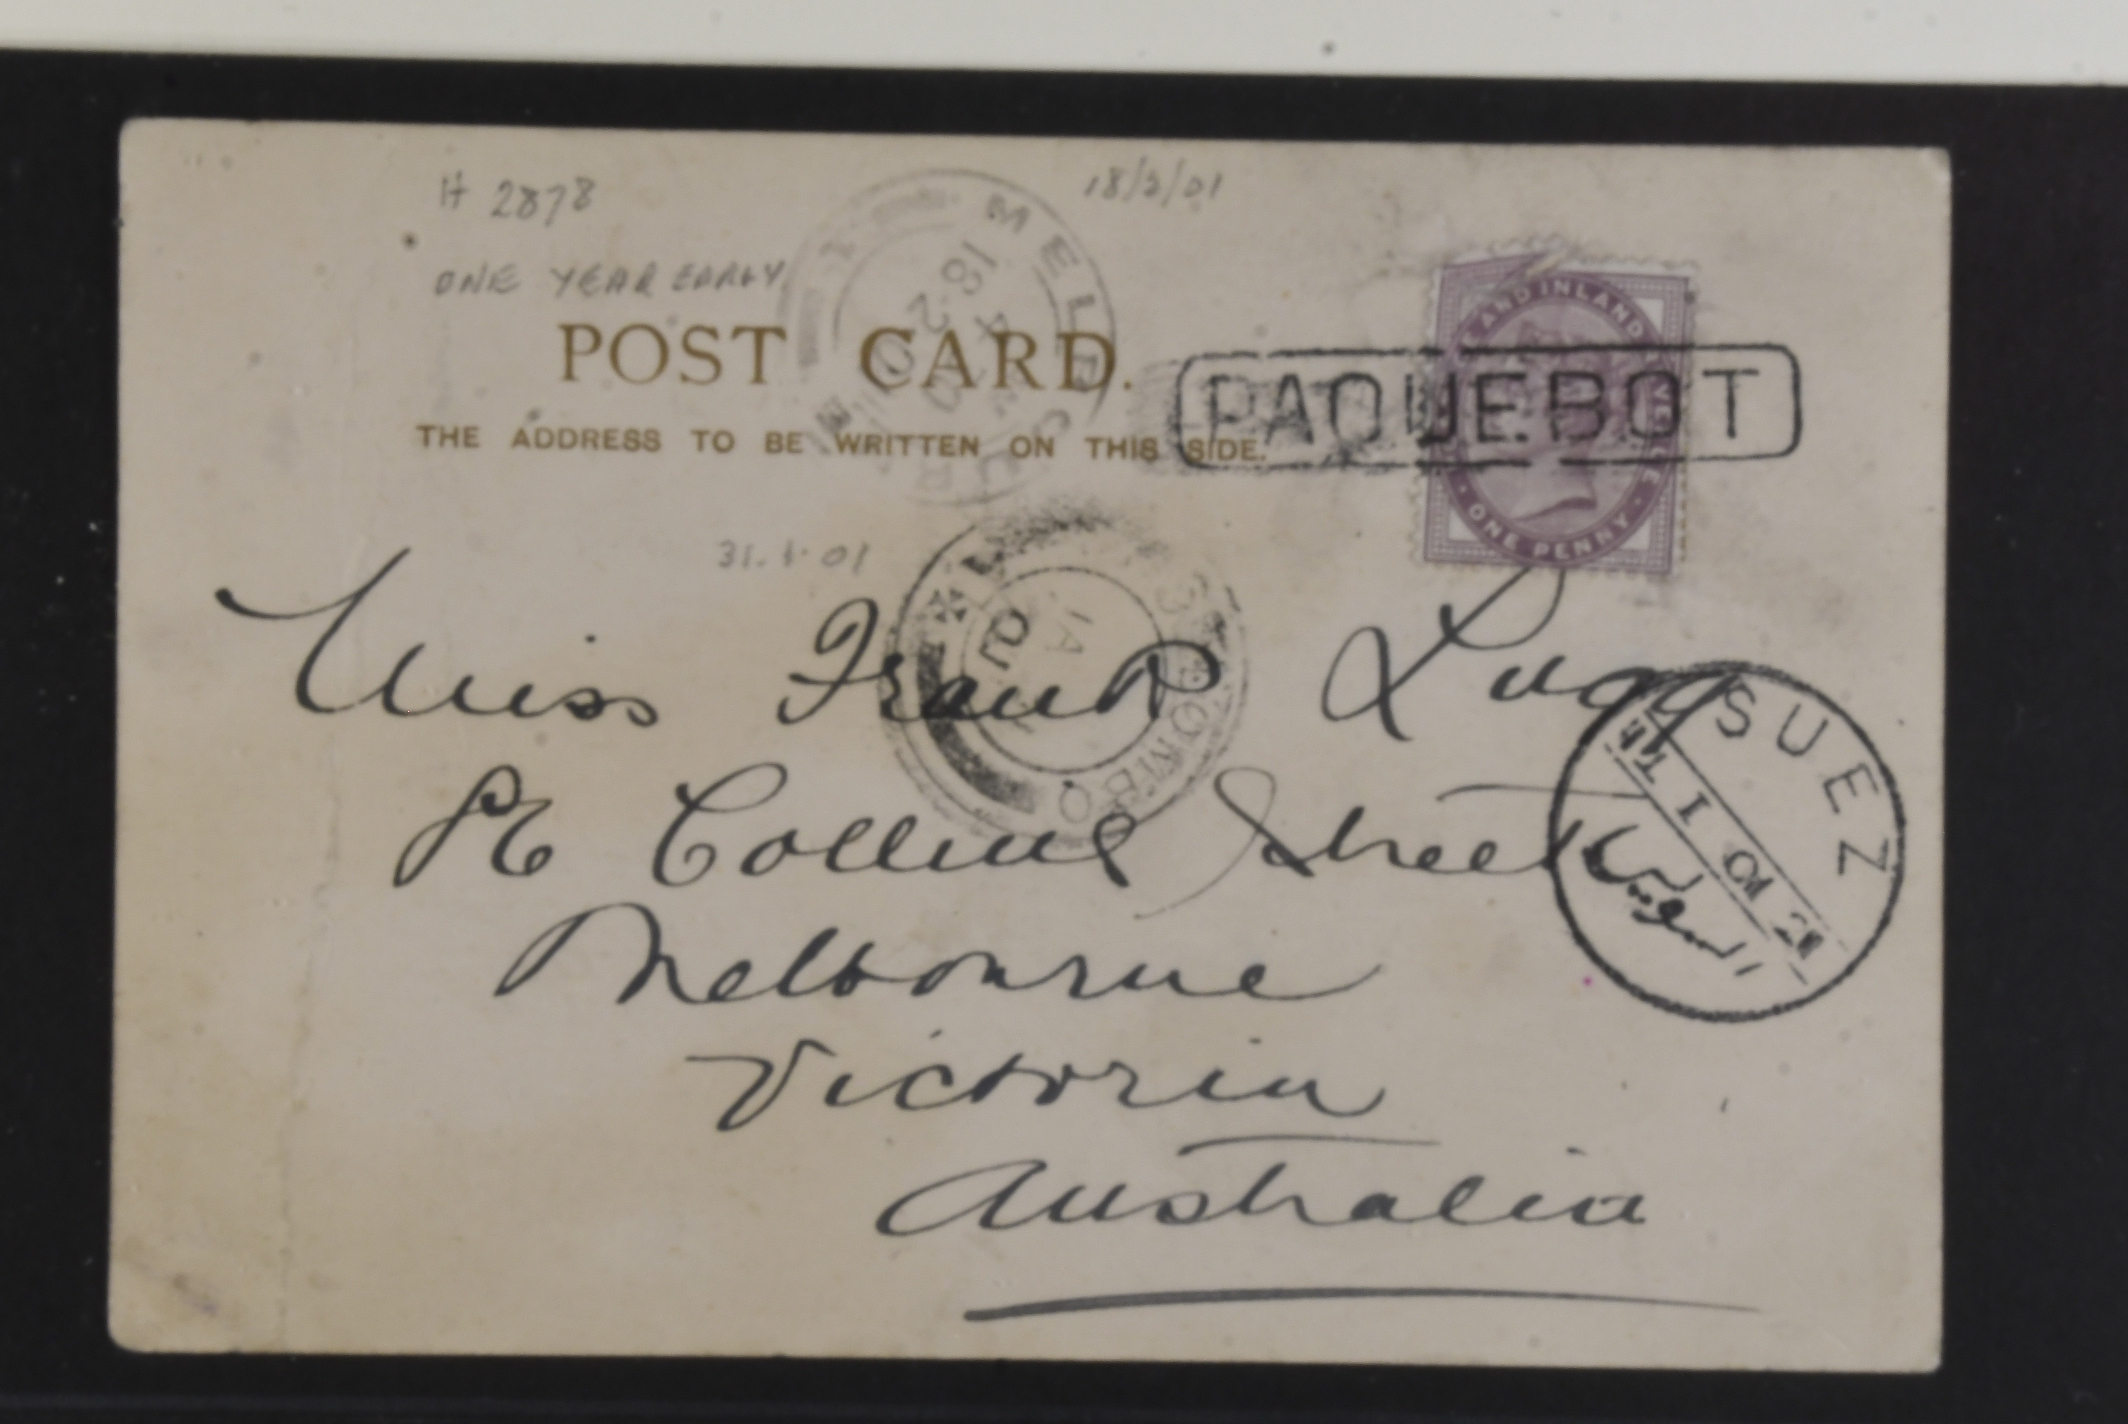 H 2878
18/2/01
ONE YEAR EARLY
MELBOURNE
18
2
01
POST CARD.
THE ADDRESS TO BE WRITTEN ON THIS SIDE.
PAQUEBOT
AND INLAND REVENUE
ONE PENNY
31.1.01
COLOMBO
Miss Frank Lugg
Collins Street
Melbourne
Victoria
Australia
SUEZ
I 01
السويس